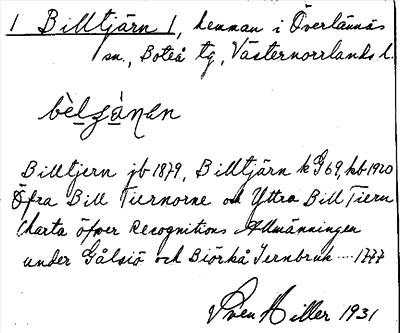 1 Billtjärn 1, hemman i Överlännäs
sn., Boteå tg, Västernorrlands l.
Billtjern jb 1879, Billtjärn kG69, kb 1920
Öfra Bill Tiernorne och Yttra Bill Tiern
Charta öfver Recognitions Allmänningen
under Gålsiö och Biörkå Jernbruk ---- 1777
Sven Hiller 1931